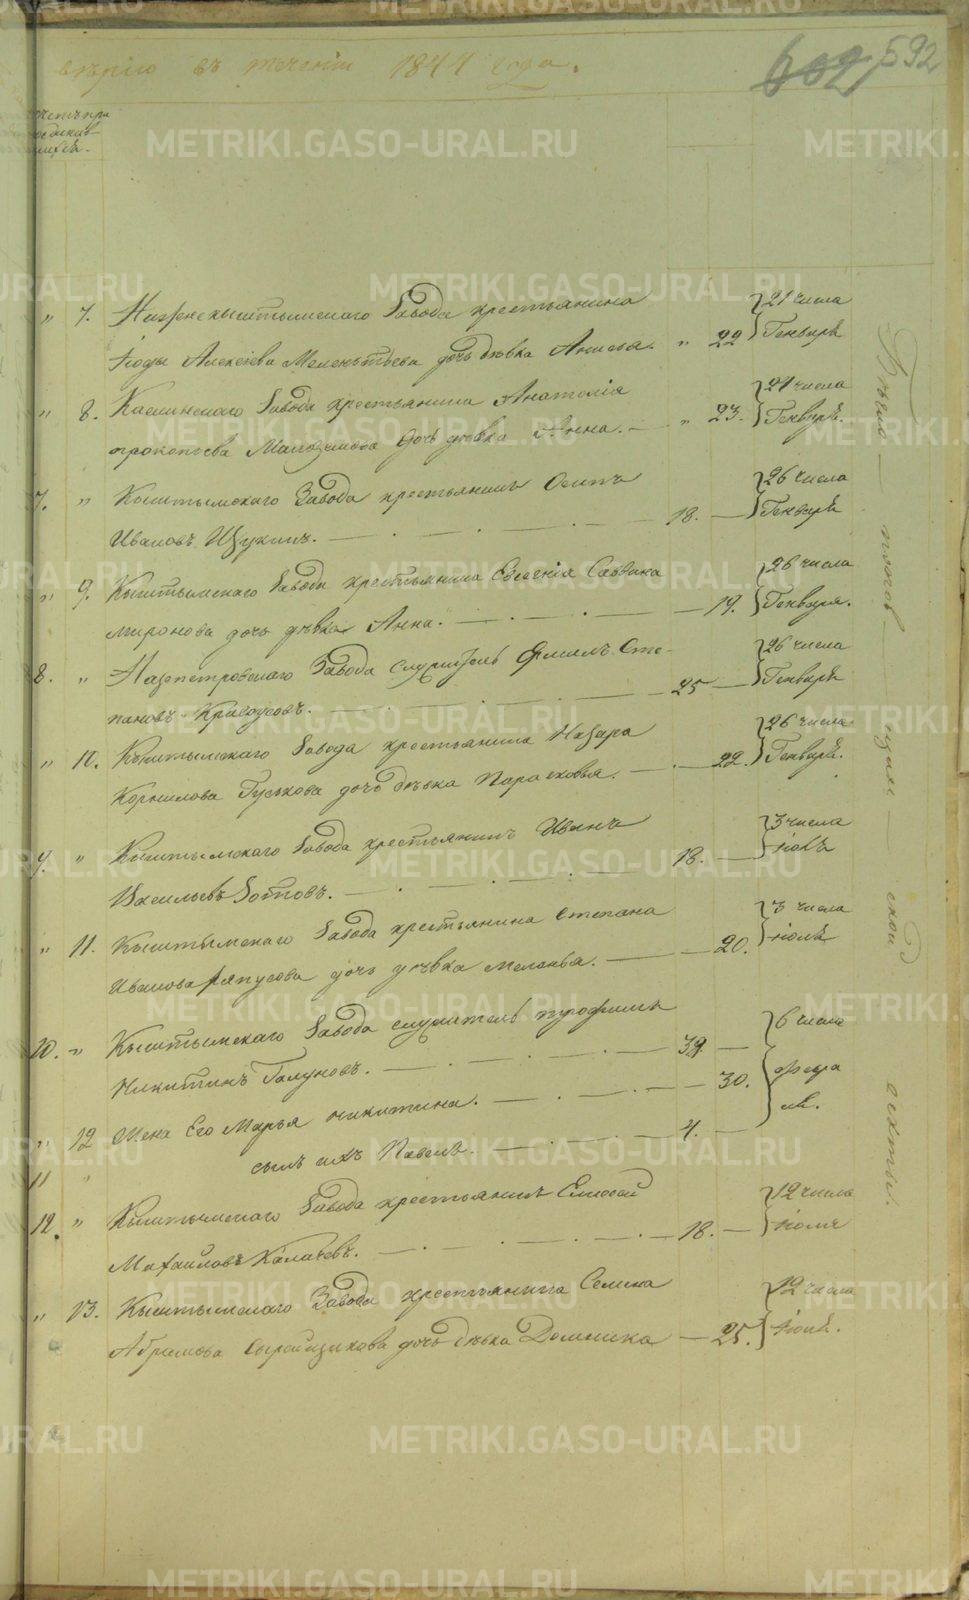 вѣрію въ теченіи 1844 года.
592
„ 7. Нижнекыштымскаго Завода крестьянина
Алексѣева Мелентьева дочь дѣвка Анисья. „ 22
21 числа
Генваря
„ 8. Каслинскаго Завода крестьянина Анатолія
Прокопьева дочь дѣвка Анна. — „ 23.
24 числа
Генваря.
7. „ Кыштымскаго Завода крестьянинъ Осипъ
Ивановъ Щукинъ. — 18. —
26 числа
Генваря
„ 9. Кыштымскаго Завода крестьянина Евсенія Саввина
Миронова дочь дѣвка Анна. — 19.
26 числа
Генваря.
8. „ Назепетровскаго Завода служитель Филипъ Сте-
пановъ — 25 —
26 числа
Генваря
„ 10. Кыштымскаго Завода крестьянина Назара
Корнилова Гуськова дочь дѣвка Парасковья. — 22.
26 числа
Генваря.
9. „ Кыштымскаго Завода крестьянинъ Иванъ
Васильевъ Зотовъ. — 18. —
3 числа
„ 11. Кыштымскаго Завода крестьянина Степана
Иванова Ряпусова дочь дѣвка Меланья. — 20.
3 числа
10. „ Кыштымскаго Завода служитель Трофимъ
Никитинъ Галуновъ. — 39. —
6 числа
„ 12 Жена Его Марья Никитина. — 30.
Февра
11 „ сынъ ихъ Павелъ. — 4. —
12. „ Кыштымскаго Завода крестьянинъ Елисей
Михайловъ Калачевъ. — 18. —
12 числа
„ 13. Кыштымскаго Завода крестьянина Семена
Абрамова Сырейщикова дочь дѣвка Домника — 25.
12 числа
METRIKI.GASO-URAL.RU